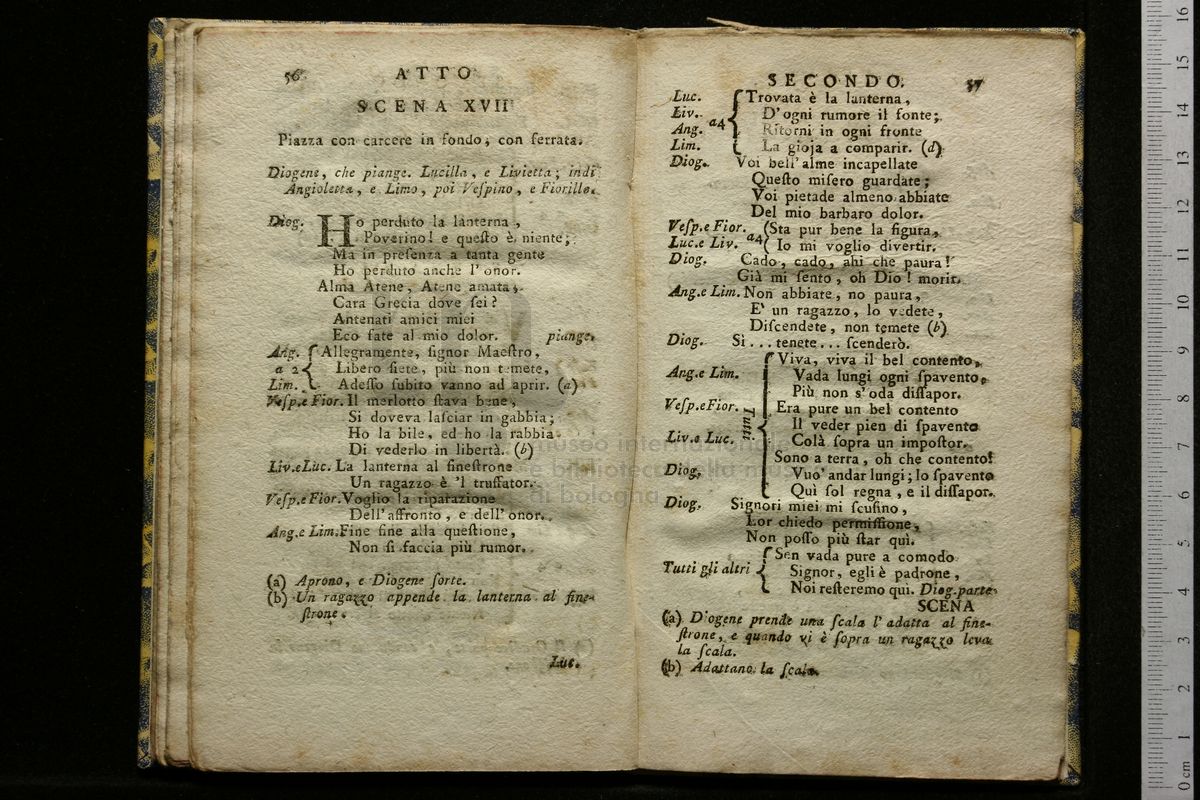 56
ATTO
SCENA XVII
Piazza con carcere in fondo, con ferrata.
Diogene, che piange. Lucilla, e Livietta; indi
Angioletta, e Limo, poi Veſpino, e Fiorillo.
Diog. Ho perduto la lanterna,
Poverino! e queſto è niente;
Ma in preſenza a tanta gente
Ho perduto anche l'onor.
Alma Atene, Atene amata,
Cara Grecia dove ſei?
Antenati amici miei
Eco fate al mio dolor. piange.
Ang. Allegramente, ſignor Maeſtro,
a 2 Libero ſiete, più non temete,
Lim. Adeſſo ſubito vanno ad aprir. (a)
Veſp.e Fior. Il merlotto ſtava bene,
Si doveva laſciar in gabbia;
Ho la bile, ed ho la rabbia
Di vederlo in libertà. (b)
Liv.e Luc. La lanterna al fineſtrone
Un ragazzo è 'l truffator.
Veſp.e Fior. Voglio la riparazione
Dell'affronto, e dell'onor.
Ang.e Lim. Fine fine alla queſtione,
Non ſi faccia più rumor.
(a) Aprono, e Diogene ſorte.
(b) Un ragazzo appende la lanterna al fine-
ſtrone.
Luc.
SECONDO. 57
Luc. Trovata è la lanterna,
Liv. D'ogni rumore il fonte;
Ang. a4 Ritorni in ogni fronte
Lim. La gioja a comparir. (a)
Diog. Voi bell'alme incapellate
Queſto miſero guardate;
Voi pietade almeno abbiate
Del mio barbaro dolor.
Veſp.e Fior. (Sta pur bene la figura,
Luc.e Liv. a4 ( Io mi voglio divertir.
Diog. Cado, cado, ahi che paura!
Già mi ſento, oh Dio! morir.
Ang.e Lim. Non abbiate, no paura,
E' un ragazzo, lo vedete,
Diſcendete, non temete (b)
Diog. Sì... tenete... ſcenderò.
Viva, viva il bel contento,
Ang.e Lim. Vada lungi ogni ſpavento,
Più non s'oda diſſapor.
Veſp.e Fior. Era pure un bel contento
Tutti Il veder pien di ſpavento
Liv.e Luc. Colà ſopra un impoſtor.
Sono a terra, oh che contento!
Diog. Vuo' andar lungi; lo ſpavento
Quì ſol regna, e il diſſapor.
Diog. Signori miei mi ſcuſino,
Lor chiedo permiſſione,
Non poſſo più ſtar quì.
Sen vada pure a comodo
Tutti gli altri Signor, egli è padrone,
Noi reſteremo qui. Diog.parte.
SCENA
(a) Diogene prende una ſcala l'adatta al fine-
ſtrone, e quando vi è ſopra un ragazzo leva
la ſcala.
(b) Adattano la ſcala.
museo internazionale
e biblioteca della musica
di bologna
0 cm 1 2 3 4 5 6 7 8 9 10 11 12 13 14 15 16